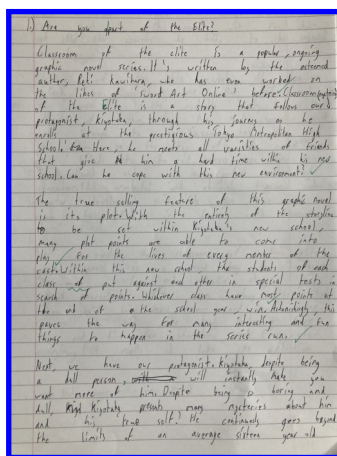 1.) Are you apart of the Elite?
Classroom of the elite is a popular, ongoing
graphic novel series. It's written by the esteemed
author, Reki Kawihara, who has even worked on
the likes of 'Sword Art Online' before. Classroom
of the Elite is a story that follows our
protagonist, Kiyotaka, through his journey as he
enrolls at the prestigious 'Tokyo Metropolitan High
School'. Here, he meets all varieties of friends
that give him a hard time within his new
school. Can he cope with this new environment?
The true selling feature of this graphic novel
is its plot. With the entirety of the storyline
to be set within Kiyotaka's new school,
many plot points are able to come into
play for the lives of every member of the
cast. Within this new school the students of each
class put against each other in special tests in
search of points. Whichever class have most points at
the end of the school year, win. Astonishingly, this
paves the way for many interesting and fun
things to happen in the series run.
Next, we have our protagonist. Kiyotaka, despite being
a dull person, will instantly make you
want more of him. Despite being so boring and
dull, Kiyotaka presents many mysteries about him
and his 'true self'. He continuously goes beyond
the limits of an average sixteen year old